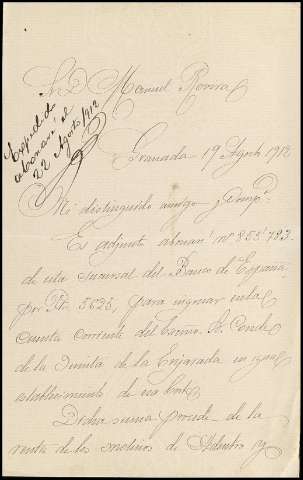 Sr. D. Manuel Rovira
Expedido
abonaré el
22 Agosto 1912
Granada 19 Agosto 1912
Mi distinguido amigo y Comp.º
Es adjunto abonaré nº 855.783
de esta sucursal del Banco de España,
por Ptas 5525, para ingresar en la
cuenta corriente del Excmo. Sr. Conde
de la Quinta de la Enjarada en ese
establecimiento de esa Corte
Dicha suma procede de la
renta de los molinos de Adentro y